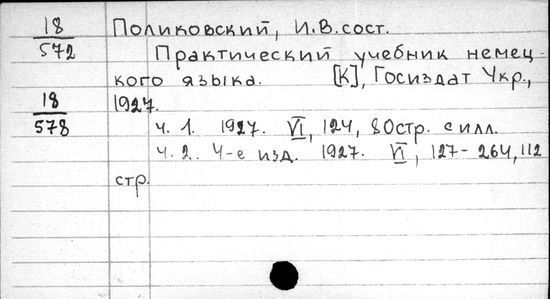 18
572
Поликовский, И.В. сост.
Практический учебник немец-
кого языка. [К], Госиздат Укр.,
18
578
1927.
ч. 1. 1927. VI, 124, 80стр. с илл.
ч. 2. 4-е изд. 1927. VI, 127-264, 112
стр.